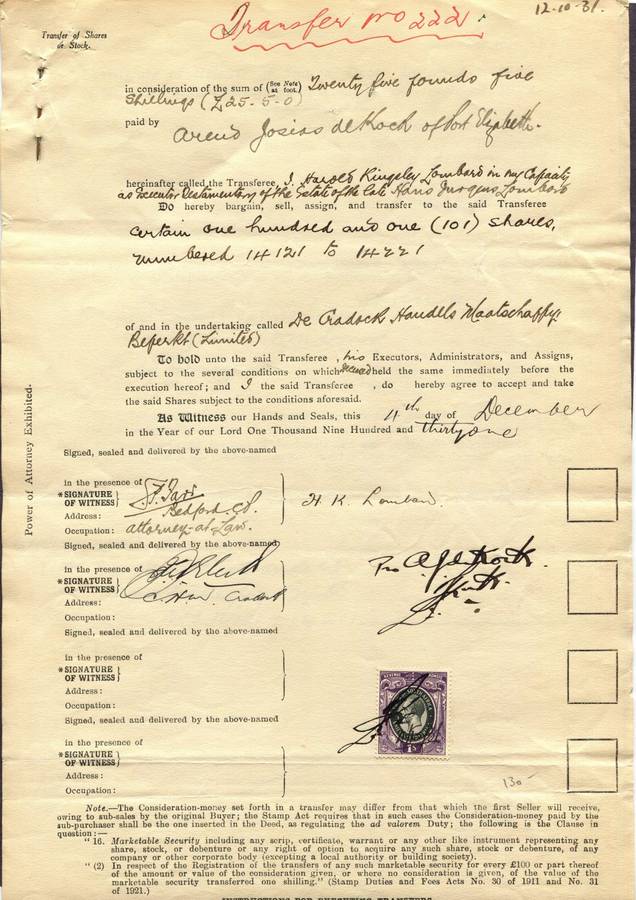 Transfer no 222.
12-10-31.
Transfer of Shares
or Stock.
in consideration of the sum of (See Note at foot.) Twenty five pounds five
Shillings (£25-5-0)
paid by
Arend Josias de Kock of Port Elizabeth.
hereinafter called the Transferee I, Harold Kingsley Lombard in my Capacity
as Executor Testamentary of the Estate of the late Hans Jurgens Lombard
Do hereby bargain, sell, assign, and transfer to the said Transferee
certain one hundred and one (101) shares,
numbered 14121 to 14221
of and in the undertaking called De Cradock Handels Maatschappy
Beperkt (Limited)
To hold unto the said Transferee, his Executors, Administrators, and Assigns,
subject to the several conditions on which deceased held the same immediately before the
execution hereof; and I the said Transferee, do hereby agree to accept and take
the said Shares subject to the conditions aforesaid.
As Witness our Hands and Seals, this 11th day of December
in the Year of our Lord One Thousand Nine Hundred and thirty one
Power of Attorney Exhibited.
Signed, sealed and delivered by the above-named
in the presence of
*SIGNATURE
OF WITNESS
H. K. Lombard.
Address: Bedford, C.P.
Occupation: attorney-at-Law.
Signed, sealed and delivered by the above-named
in the presence of
*SIGNATURE
OF WITNESS
Address: Cradock
Occupation:
Signed, sealed and delivered by the above-named
in the presence of
*SIGNATURE
OF WITNESS
Address:
Occupation:
Signed, sealed and delivered by the above-named
in the presence of
*SIGNATURE
OF WITNESS
Address:
Occupation:
130-
Note.—The Consideration-money set forth in a transfer may differ from that which the first Seller will receive,
owing to sub-sales by the original Buyer; the Stamp Act requires that in such cases the Consideration-money paid by the
sub-purchaser shall be the one inserted in the Deed, as regulating the ad valorem Duty; the following is the Clause in
question:—
"16. Marketable Security including any scrip, certificate, warrant or any other like instrument representing any
share, stock, or debenture or any right of option to acquire any such share, stock or debenture, of any
company or other corporate body (excepting a local authority or building society).
"(2) In respect of the Registration of the transfers of any such marketable security for every £100 or part thereof
of the amount or value of the consideration given, or where no consideration is given, of the value of the
marketable security transferred one shilling." (Stamp Duties and Fees Acts No. 30 of 1911 and No. 31
of 1921.)
INSTRUCTIONS FOR EXECUTING TRANSFERS